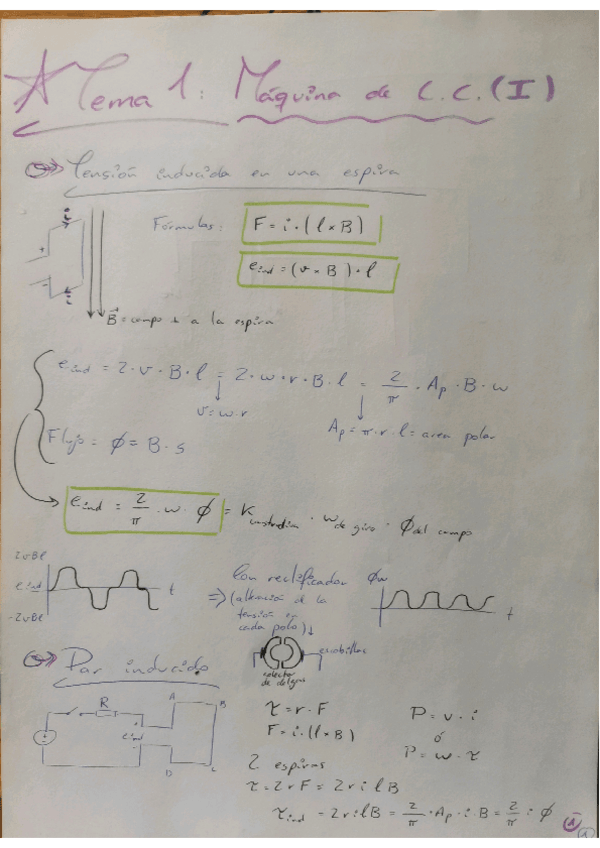 Tema 1: Máquina de C.C. (I)
Tensión inducida en una espira
Fórmulas: F = i · (l × B)
e ind = (v × B) · l
+
-
B = campo ⊥ a la espira
e ind = 2 · v · B · l = 2 · w · r · B · l = 2/π · Ap · B · w
v = w · r
Ap = π · r · l = area polar
Flujo = ϕ = B · s
e ind = 2/π · w · ϕ = K construcción · w de giro · ϕ del campo
2vBl
e ind
-2vBl
t
Con rectificador
=> (alteración de la
tensión en
cada polo) ↓
t
escobillas
colector
de delgas
Par inducido
R
A
B
e ind
D
C
τ = r · F
F = i · (l × B)
P = v · i
ó
P = w · τ
2 espiras
τ = 2rF = 2rilB
τ ind = 2rilB = 2/π · Ap · i · B = 2/π i ϕ
1
1